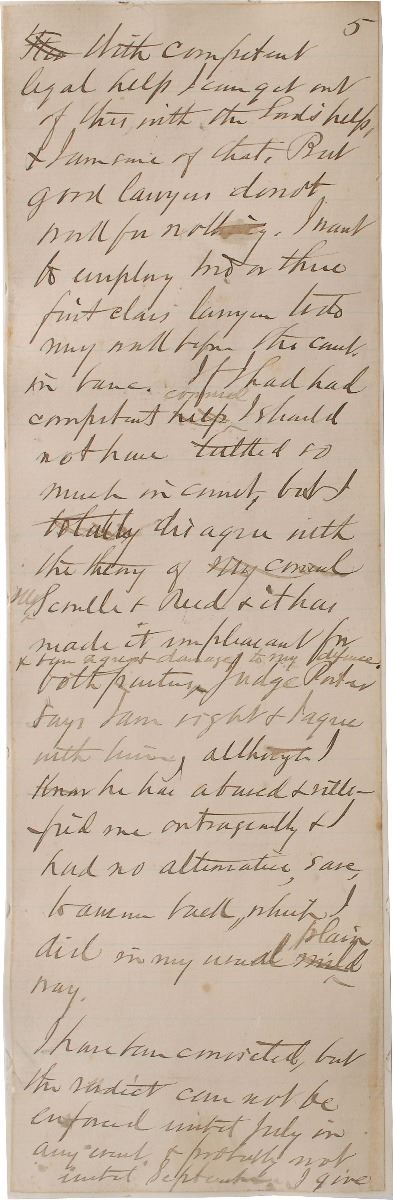 5
With competent
legal help I can get out
of this, with the Lord's help,
& I am sure of that. But
good lawyers do not
work for nothing. I want
to employ two or three
first class lawyers to do
my work before the court
in banc. If I had had
counsel
competent help I should
not have talked so
much in court, but I
totally disagree with
the theory of my counsel
Messrs Scoville & Reed & it has
made it unpleasant for
& been a great damage to my defence.
both parties, Judge Porter
says I am right & I agree
with him, although I
know he has abused & villi-
fied me outrageously & I
had no alternative, save,
to answer back, which I
plain
did in my usual mild
way.
I have been convicted, but
the verdict can not be
enforced until July in
any event, & probably not
until September. I give